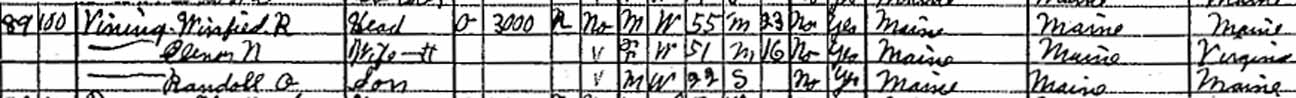 89 100 Vining Winfield R Head O 3000 R No M W 55 M 23 No Yes Maine Maine Maine
—— Elenor N Wife-H V F W 51 M 16 No Yes Maine Maine Virginia
—— Randall O Son V M W 22 S No Yes Maine Maine Maine